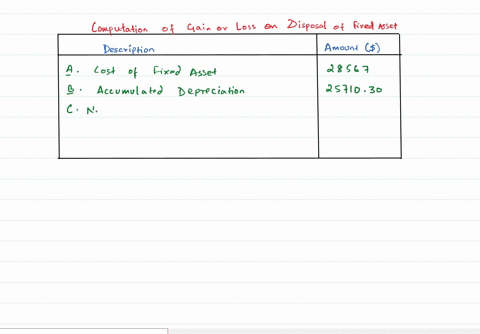 Computation of Gain or Loss on Disposal of Fixed Asset
Description Amount ($)
A. Cost of Fixed Asset 28567
B. Accumulated Depreciation 25710.30
C. N.